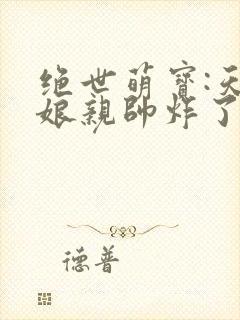 绝世萌寶:天
娘親帥炸了
德普